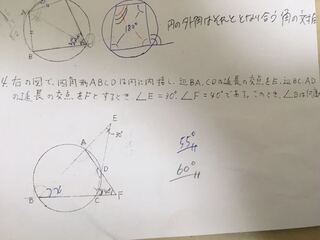 180°
円の外角はそれととなり合う角の対角
4. 右の図で、四角形ABCDは円に内接し、辺BA, CDの延長の交点をE, 辺BC, AD
の延長の交点をFとするとき、∠E=30°, ∠F=40°である。このとき、∠Bは何度
E
30°
A
55°
D
60°
B
C
F